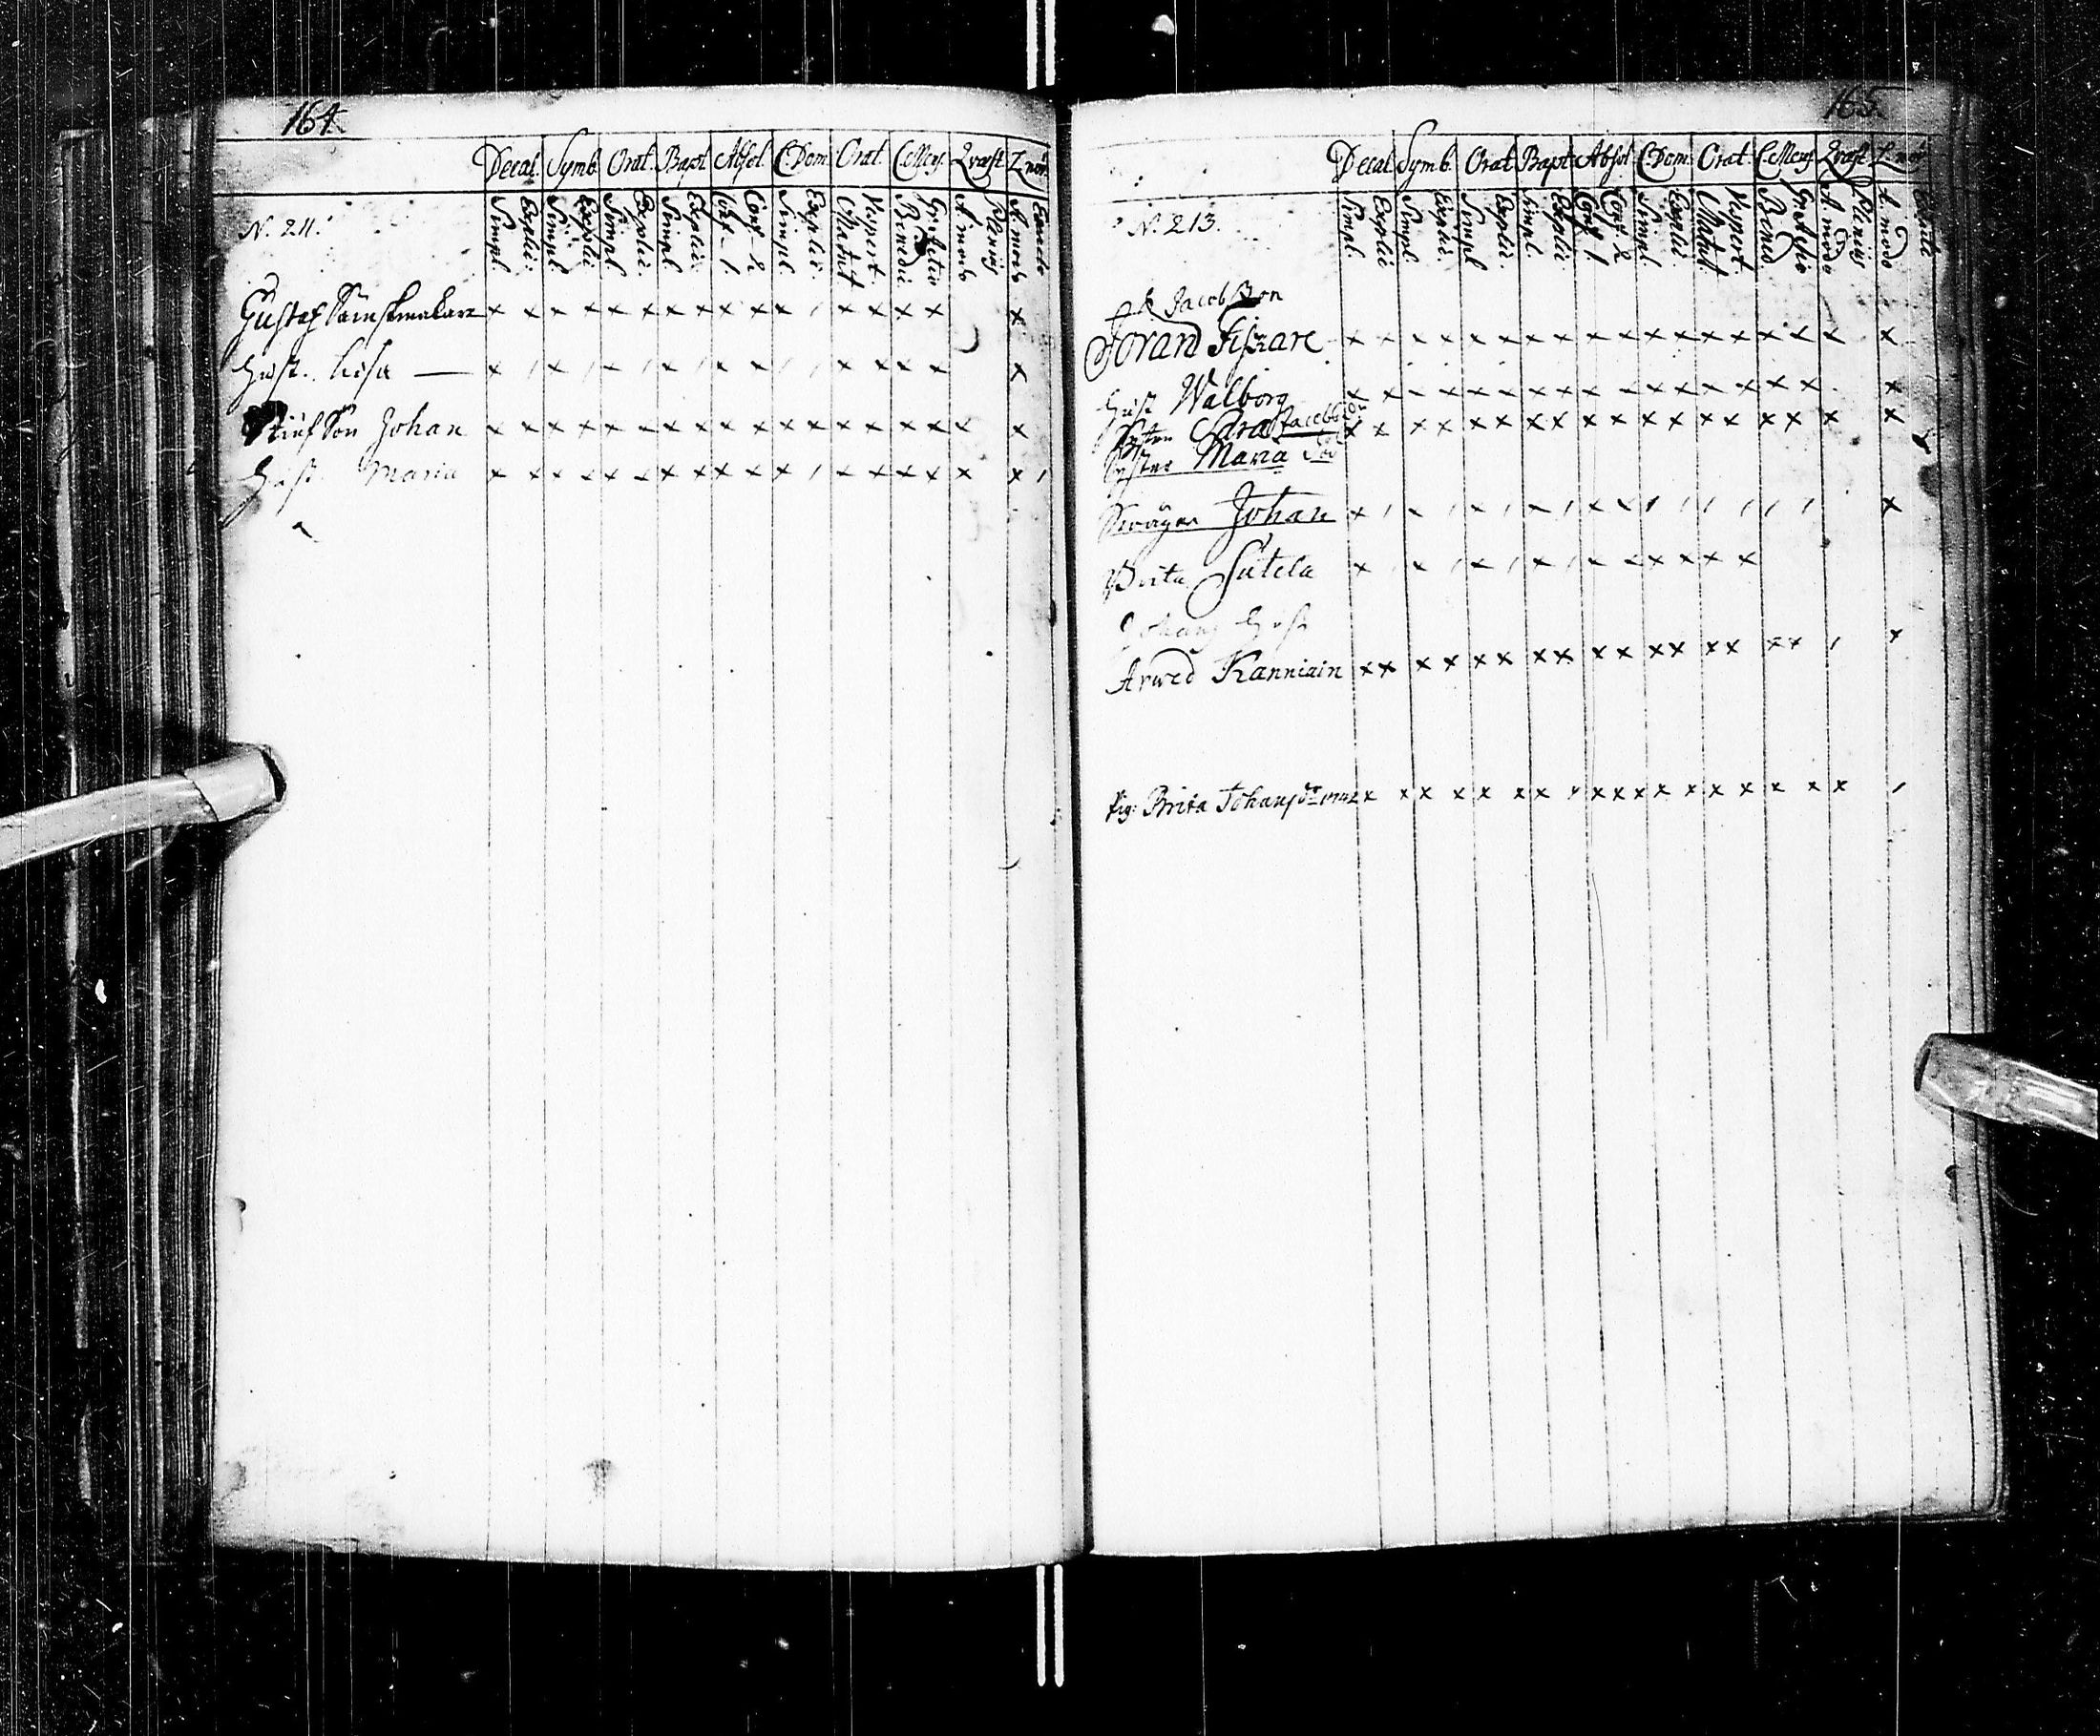 164.
Decal. Symb. Orat. Bapt. Absol. C. Dom. Orat. C. Mens. Quæst. L. nör.
N. 211. Simpl. Explic. Simpl. Explic. Simpl. Explic. Simpl. Explic. Conf. 1. Conf. 2 Simpl. Explic. Matut Vespert. Benedic Gr. Actio A. modo Plenius A. modo Exacte
Gustaf Sämskmakare x x x x x x x x x x x , x x x x x
Hust. Lisa — x , x , x , x , x x , , x x x x x
Stiuf Son Johan x x x x x x x x x x x x x x x x x x
Hust Maria x x x x x x x x x x x , x x x x x x ,
165.
Decal. Symb. Orat. Bapt. Absol. C. Dom. Orat. C. Mens. Quæst. L. nör.
N. 213. Simpl. Explic Simpl. Explic. Simpl Explic. Simpl. Explic. Conf. 1 Conf. 2 Simpl. Explic. Matut. Vespert. Bened. Gr. Actio A modo Plenius A. modo Exacte
Jacobsson
Jöran Fiskare x x x x x x x x x x x x x x x x x x
Hust Walborg x x x x x x x x x x x x x x x x x
Syster Sara Jacobs x x x x x x x x x x x x x x x x x x
Syster Maria
Swåger Johan x , x , x , x , x x , , , , , , x
Brita Sutela x , x , x , x , x x x x x x
Johans Hust
Arwed Kanniain x x x x x x x x x x x x x x x x , x
Pig: Brita Johansdr x x x x x x x x x x x x x x x x x ,